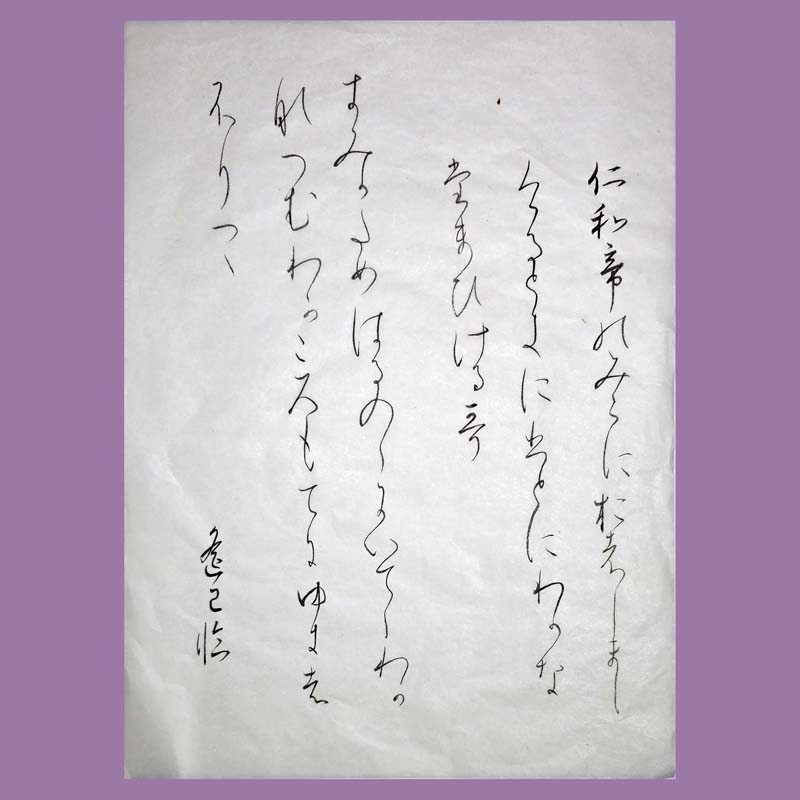 仁和帝のみこにおはしまし
けるときに人にわかな
たまひける哥
きみかためはるのゝにいてゝわか
なつむわかころもてにゆきは
ふりつゝ
臨